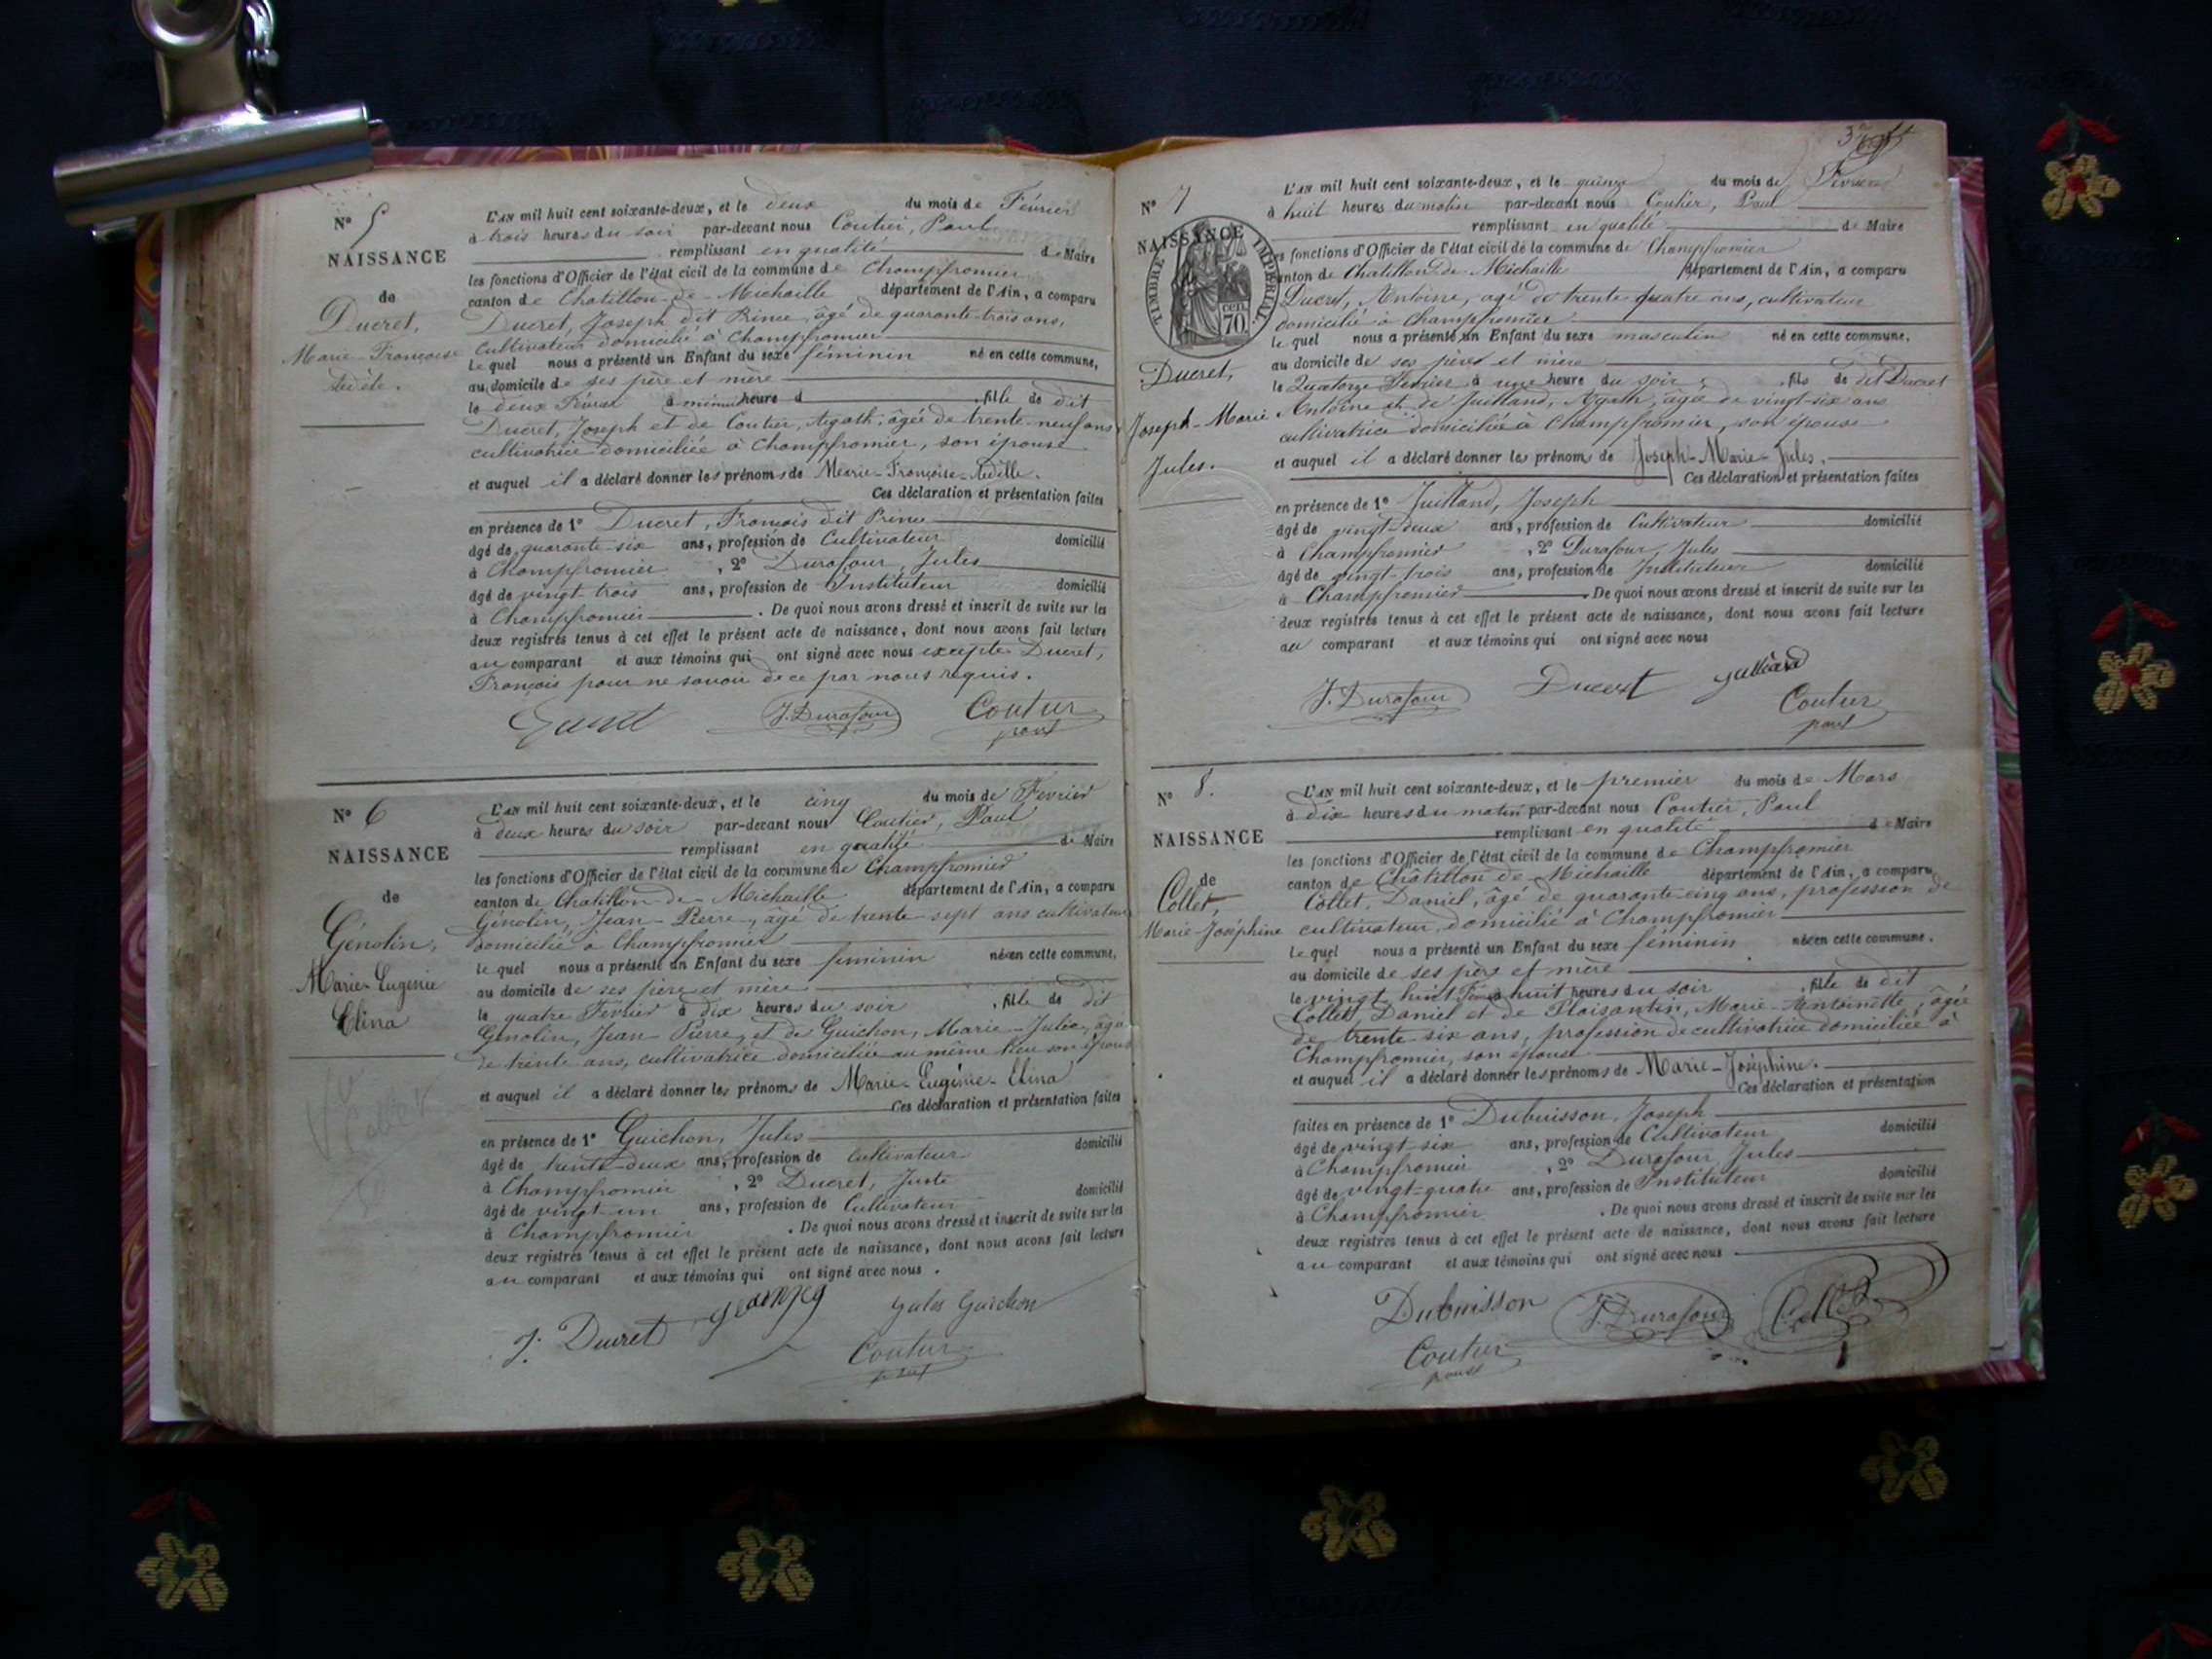 N° 5
NAISSANCE
de
Ducret,
Marie-Françoise
L'AN mil huit cent soixante-deux, et le deux du mois de Février
à trois heures du soir par-devant nous Coutier, Paul
remplissant en qualité de Maire
les fonctions d'Officier de l'état civil de la commune de Champfromier
canton de Chatillon-de-Michaille département de l'Ain, a comparu
Ducret, Joseph dit Prince, âgé de quarante-trois ans,
cultivateur domicilié à Champfromier
lequel nous a présenté un Enfant du sexe féminin né en cette commune,
au domicile de ses père et mère
le deux Février à même heure d , fille de dit
Ducret, Joseph et de Coutier, Agath, âgée de trente-neuf ans
cultivatrice domiciliée à Champfromier, son épouse
et auquel il a déclaré donner les prénoms de Marie-Françoise
Ces déclaration et présentation faites
en présence de 1° Ducret, François dit Prince
âgé de quarante-six ans, profession de Cultivateur domicilié
à Champfromier , 2° Durafour, Jules
âgé de vingt-trois ans, profession de Instituteur domicilié
à Champfromier . De quoi nous avons dressé et inscrit de suite sur les
deux registres tenus à cet effet le présent acte de naissance, dont nous avons fait lecture
au comparant et aux témoins qui ont signé avec nous excepté Ducret,
François pour ne savoir de ce par nous requis.
J. Durafour Coutier
paul
N° 6
NAISSANCE
de
Génolin,
Marie-Eugénie
Elina
L'AN mil huit cent soixante-deux, et le cinq du mois de Février
à deux heures du soir par-devant nous Coutier, Paul
remplissant en qualité de Maire
les fonctions d'Officier de l'état civil de la commune de Champfromier
canton de Chatillon-de-Michaille département de l'Ain, a comparu
Génolin, Jean-Pierre, âgé de trente-sept ans cultivateur
domicilié à Champfromier
lequel nous a présenté un Enfant du sexe féminin née en cette commune,
au domicile de ses père et mère
le quatre Février à dix heures du soir , fille de dit
Génolin, Jean-Pierre, et de Guichon, Marie-Julie, âgée
de trente ans, cultivatrice domiciliée au même lieu son épouse
et auquel il a déclaré donner les prénoms de Marie-Eugénie-Elina
Ces déclaration et présentation faites
en présence de 1° Guichon, Jules domicilié
âgé de trente-deux ans, profession de Cultivateur
à Champfromier , 2° Ducret, Juste
âgé de vingt-un ans, profession de Cultivateur domicilié
à Champfromier . De quoi nous avons dressé et inscrit de suite sur les
deux registres tenus à cet effet le présent acte de naissance, dont nous avons fait lecture
au comparant et aux témoins qui ont signé avec nous .
J. Ducret Jules Guichon
Coutier
paul
N° 7
NAISSANCE
TIMBRE IMPERIAL
CEN.
70
Ducret,
Joseph-Marie
Jules.
L'AN mil huit cent soixante-deux, et le quinze du mois de Février
à huit heures du matin par-devant nous Coutier, Paul
remplissant en qualité de Maire
les fonctions d'Officier de l'état civil de la commune de Champfromier
canton de Chatillon-de-Michaille département de l'Ain, a comparu
Ducret, Antoine, agé de trente quatre ans, cultivateur
domicilié à Champfromier
lequel nous a présenté un Enfant du sexe masculin né en cette commune,
au domicile de ses père et mère
le Quatorze Février à une heure du soir , fils de dit Ducret
Antoine et de Juilland, Agath, âgée de vingt-six ans
cultivatrice domiciliée à Champfromier, son épouse
et auquel il a déclaré donner les prénoms de Joseph-Marie-Jules.
Ces déclaration et présentation faites
en présence de 1° Juilland, Joseph
âgé de vingt-deux ans, profession de Cultivateur domicilié
à Champfromier , 2° Durafour, Jules
âgé de vingt-trois ans, profession de Instituteur domicilié
à Champfromier . De quoi nous avons dressé et inscrit de suite sur les
deux registres tenus à cet effet le présent acte de naissance, dont nous avons fait lecture
au comparant et aux témoins qui ont signé avec nous
J. Durafour Ducret
Coutier
paul
N° 8.
NAISSANCE
de
Collet,
Marie-Joséphine
L'AN mil huit cent soixante-deux, et le premier du mois de Mars
à dix heures du matin par-devant nous Coutier, Paul
remplissant en qualité de Maire
les fonctions d'Officier de l'état civil de la commune de Champfromier
canton de Châtillon de Michaille département de l'Ain, a comparu
Collet, Daniel, âgé de quarante-cinq ans, profession de
cultivateur, domicilié à Champfromier
lequel nous a présenté un Enfant du sexe féminin née en cette commune.
au domicile de ses père et mère
le vingt huit Février à huit heures du soir , fille de dit
Collet, Daniel et de Ploisantin, Marie-Antoinette, âgée
de trente six ans, profession de cultivatrice domiciliée à
Champfromier, son épouse
et auquel il a déclaré donner les prénoms de Marie-Joséphine.
Ces déclaration et présentation
faites en présence de 1° Dubuisson, Joseph
âgé de vingt-six ans, profession de Cultivateur domicilié
à Champfromier , 2° Durafour, Jules
âgé de vingt-quatre ans, profession de Instituteur domicilié
à Champfromier . De quoi nous avons dressé et inscrit de suite sur les
deux registres tenus à cet effet le présent acte de naissance, dont nous avons fait lecture
au comparant et aux témoins qui ont signé avec nous
Dubuisson J. Durafour Collet
Coutier
paul